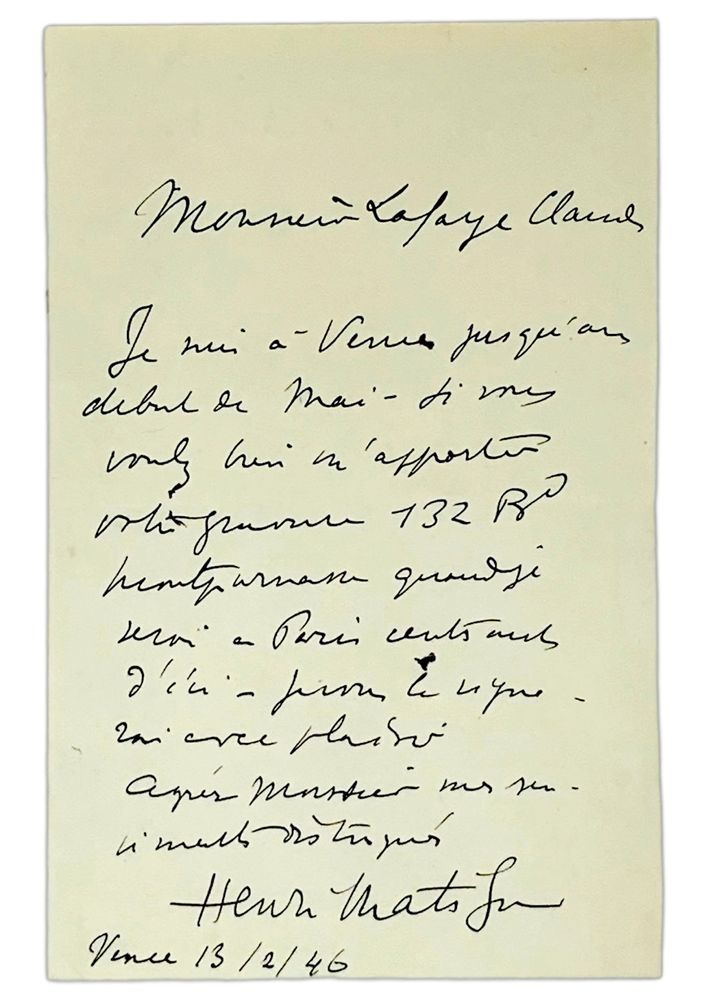 Monsieur Lafaye Claude
Je suis à Vence jusqu'au
debut de Mai - Si vous
voulez bien m'apporter
votre gravure 132 Bd
Montparnasse quand je
serai a Paris
d'ici - je vous le signe-
rai avec plaisir
Agréez Monsieur mes sen-
timents distingués
Henri Matisse
Vence 13/2/46